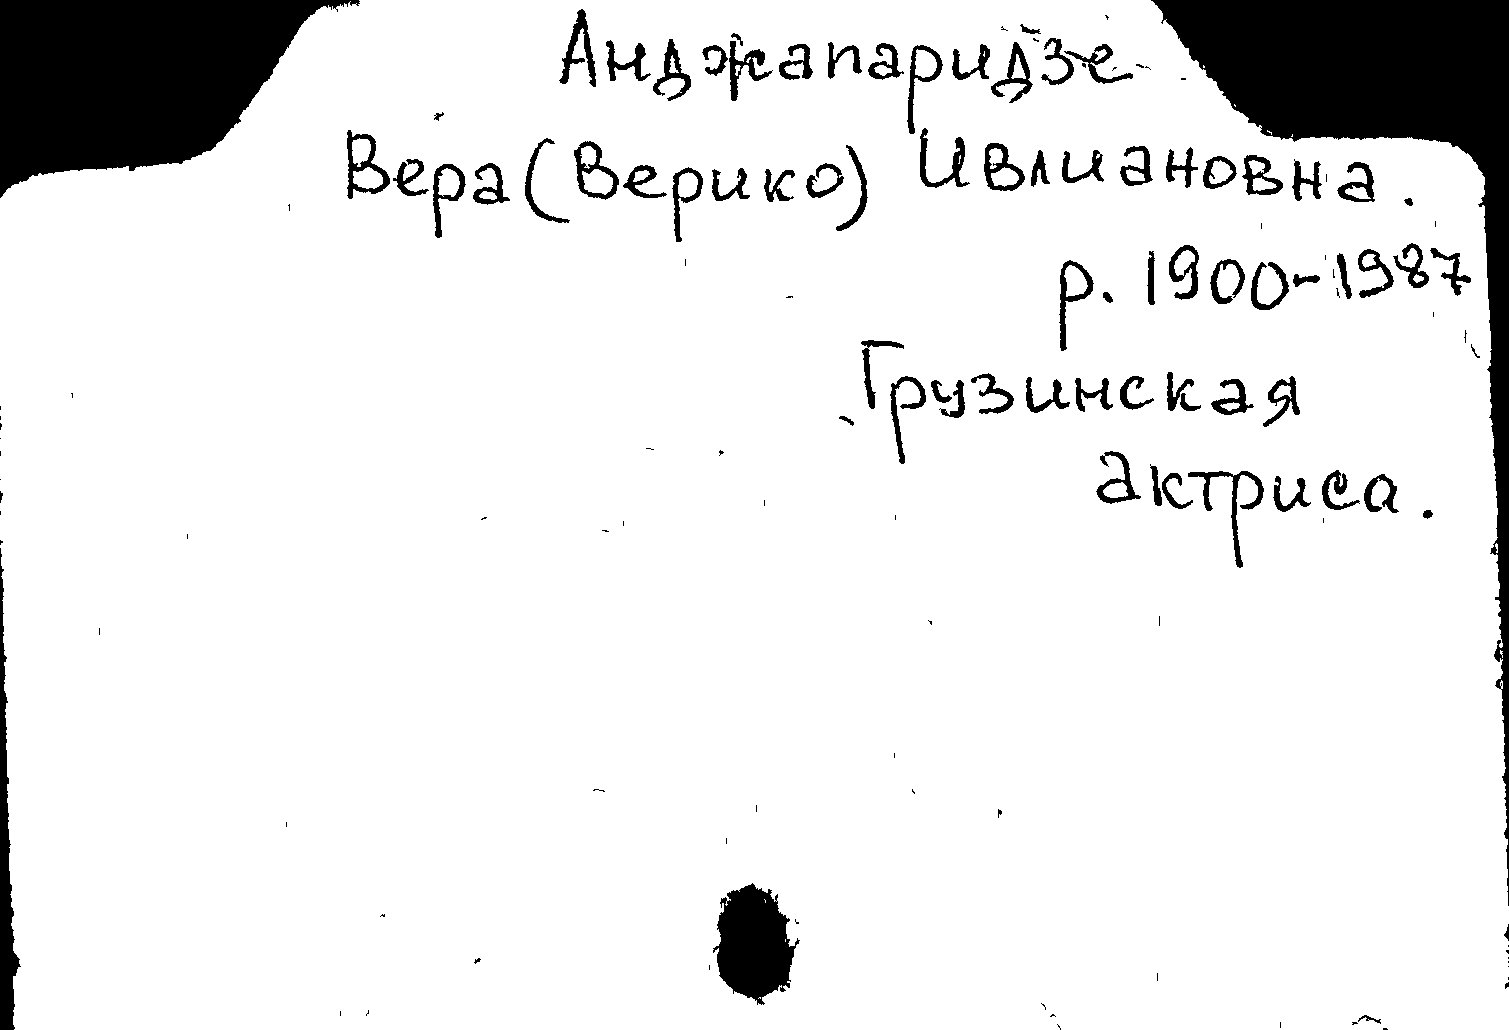 Анджапаридзе
Вера (Верико) Ивлиановна.
р. 1900-1987
Грузинская
актриса.